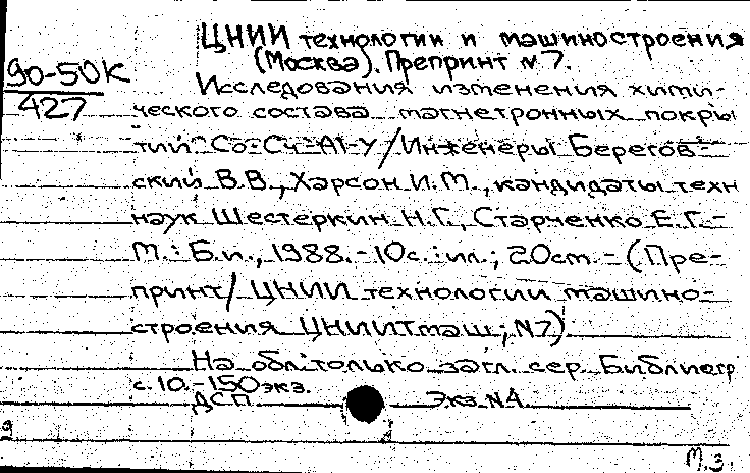 ЦНИИ технологии и машиностроения
(Москва). Препринт N 7.
90-50К
427
Исследования изменения хими-
ческого состава магнетронных покры
тий Co-Cч-Al-Y/Инженеры Берегов-
ский В.В., Харсон И.М., кандидаты техн
наук Шестеркин Н.Г., Старченко Е.Г.-
М.: Б.и., 1988.-10с.:ил.; 20см.-(Пре-
принт/ ЦНИИ технологии машино-
строения ЦНИИТмаш; N7).
На обл. только загл. сер. Библиогр
с. 10.-150экз.
ДСП Экз. N4
М.З.